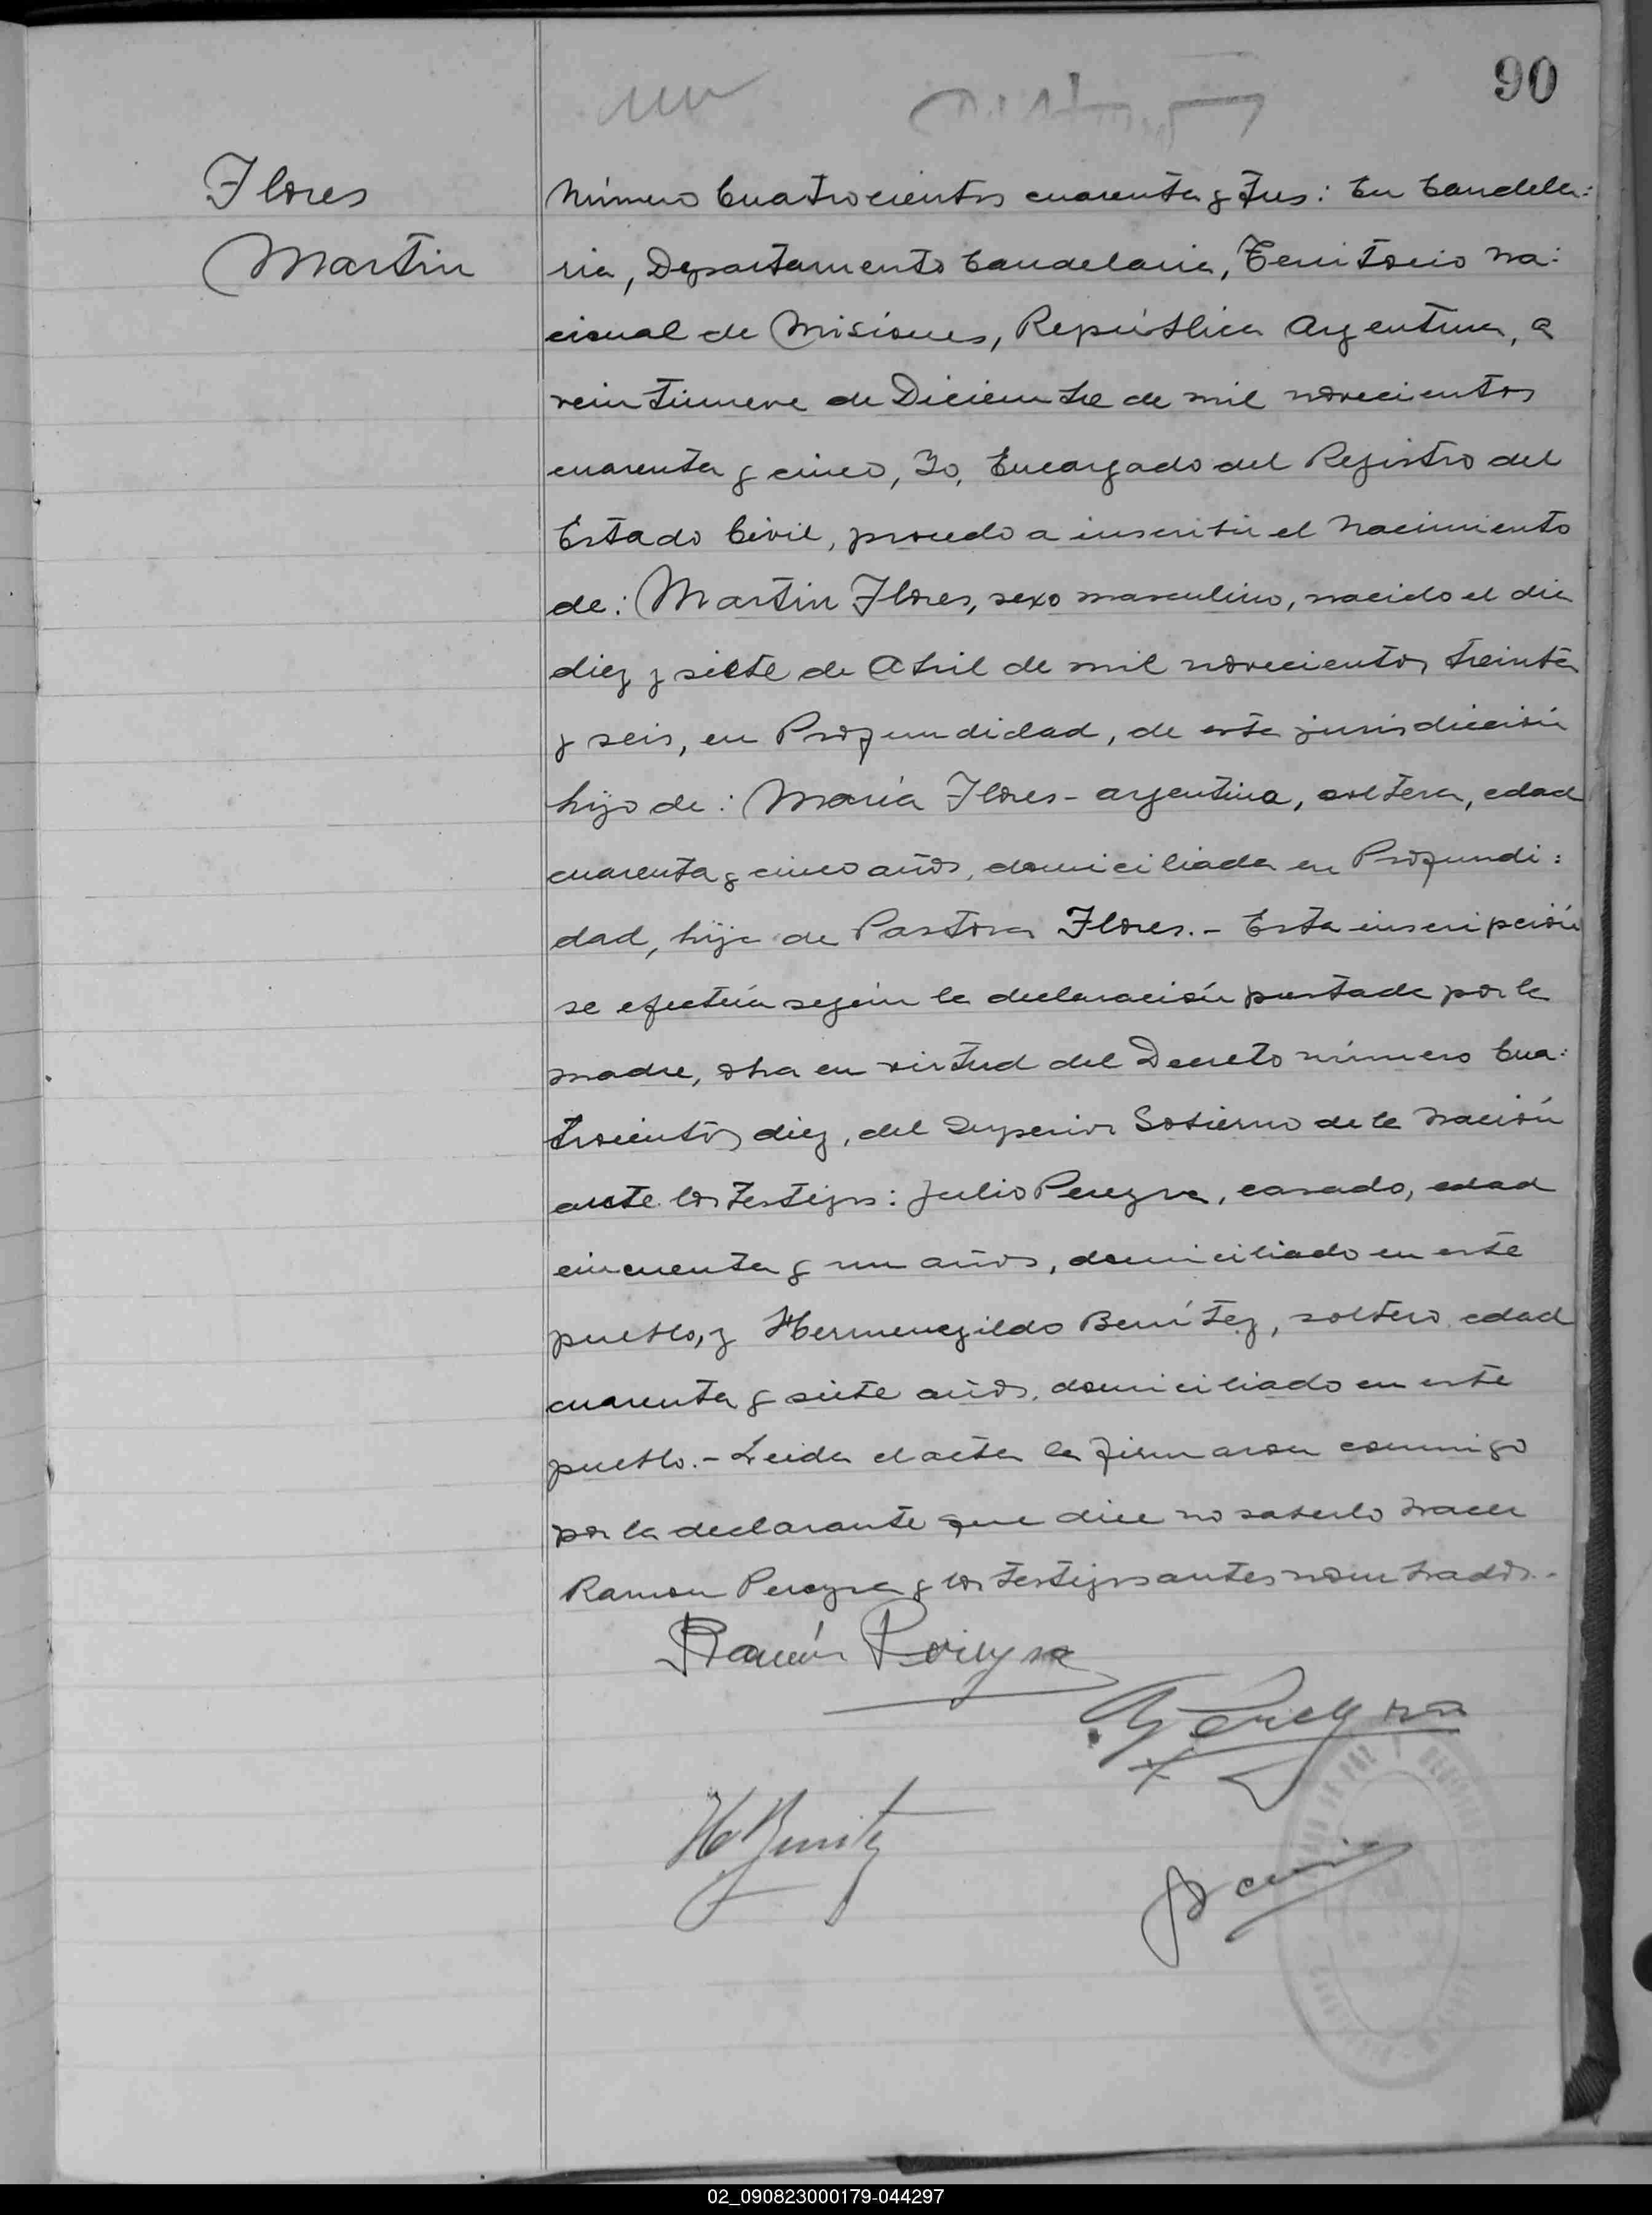 90
Flores
Martin
Número Cuatrocientos cuarenta y tres: En Candela:
ria, Departamento Candelaria, Territorio Na:
cional de Misiones, República Argentina, a
veintinueve de Diciembre de mil novecientos
cuarenta y cinco, Yo, Encargado del Registro del
Estado Civil, procedo a inscribir el Nacimiento
de: Martin Flores, sexo masculino, nacido el dia
diez y siete de Abril de mil novecientos treinta
y seis, en Profundidad, de esta jurisdicción
hijo de: María Flores - argentina, soltera, edad
cuarenta y cinco años, domiciliada en Profundi:
dad, hija de Pastora Flores. - Esta inscripción
se efectúa según la declaración prestada por la
madre, obra en virtud del Decreto número Cua:
trocientos diez, del Superior Gobierno de la Nación
ante los testigos: Julio Pereyra, casado, edad
cincuenta y un años, domiciliado en este
pueblo, y Hermenegildo Benítez, soltero, edad
cuarenta y siete años, domiciliado en este
pueblo. - Leida el acta la firmaron conmigo
por la declarante que dice no saberlo hacer
Ramon Pereyra y los testigos antes nombrados. -
Ramón Pereyra
J Pereyra
H Benitez
02_090823000179-044297